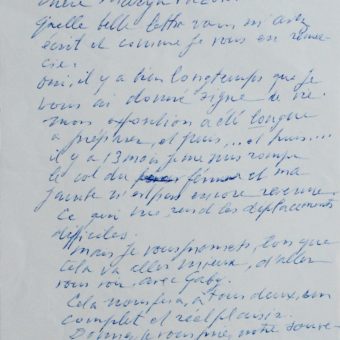 Quelle belle lettre vous m'avez
écrit et comme je vous en remer-
cie.
Oui, il y a bien longtemps que je
vous ai donné signe de vie.
mon exposition a été longue
à préparer, et puis... et puis....
il y a 13 mois je me suis rompu
le col du fémur et ma
jambe n'est pas encore revenue.
Ce qui me rend les déplacements
difficiles.
Mais je vous promets, lorsque
cela va aller mieux, d'aller
vous voir avec Gaby.
Cela nous fera, à tous deux, un
complet et réel plaisir.
Donnez, je vous prie, votre